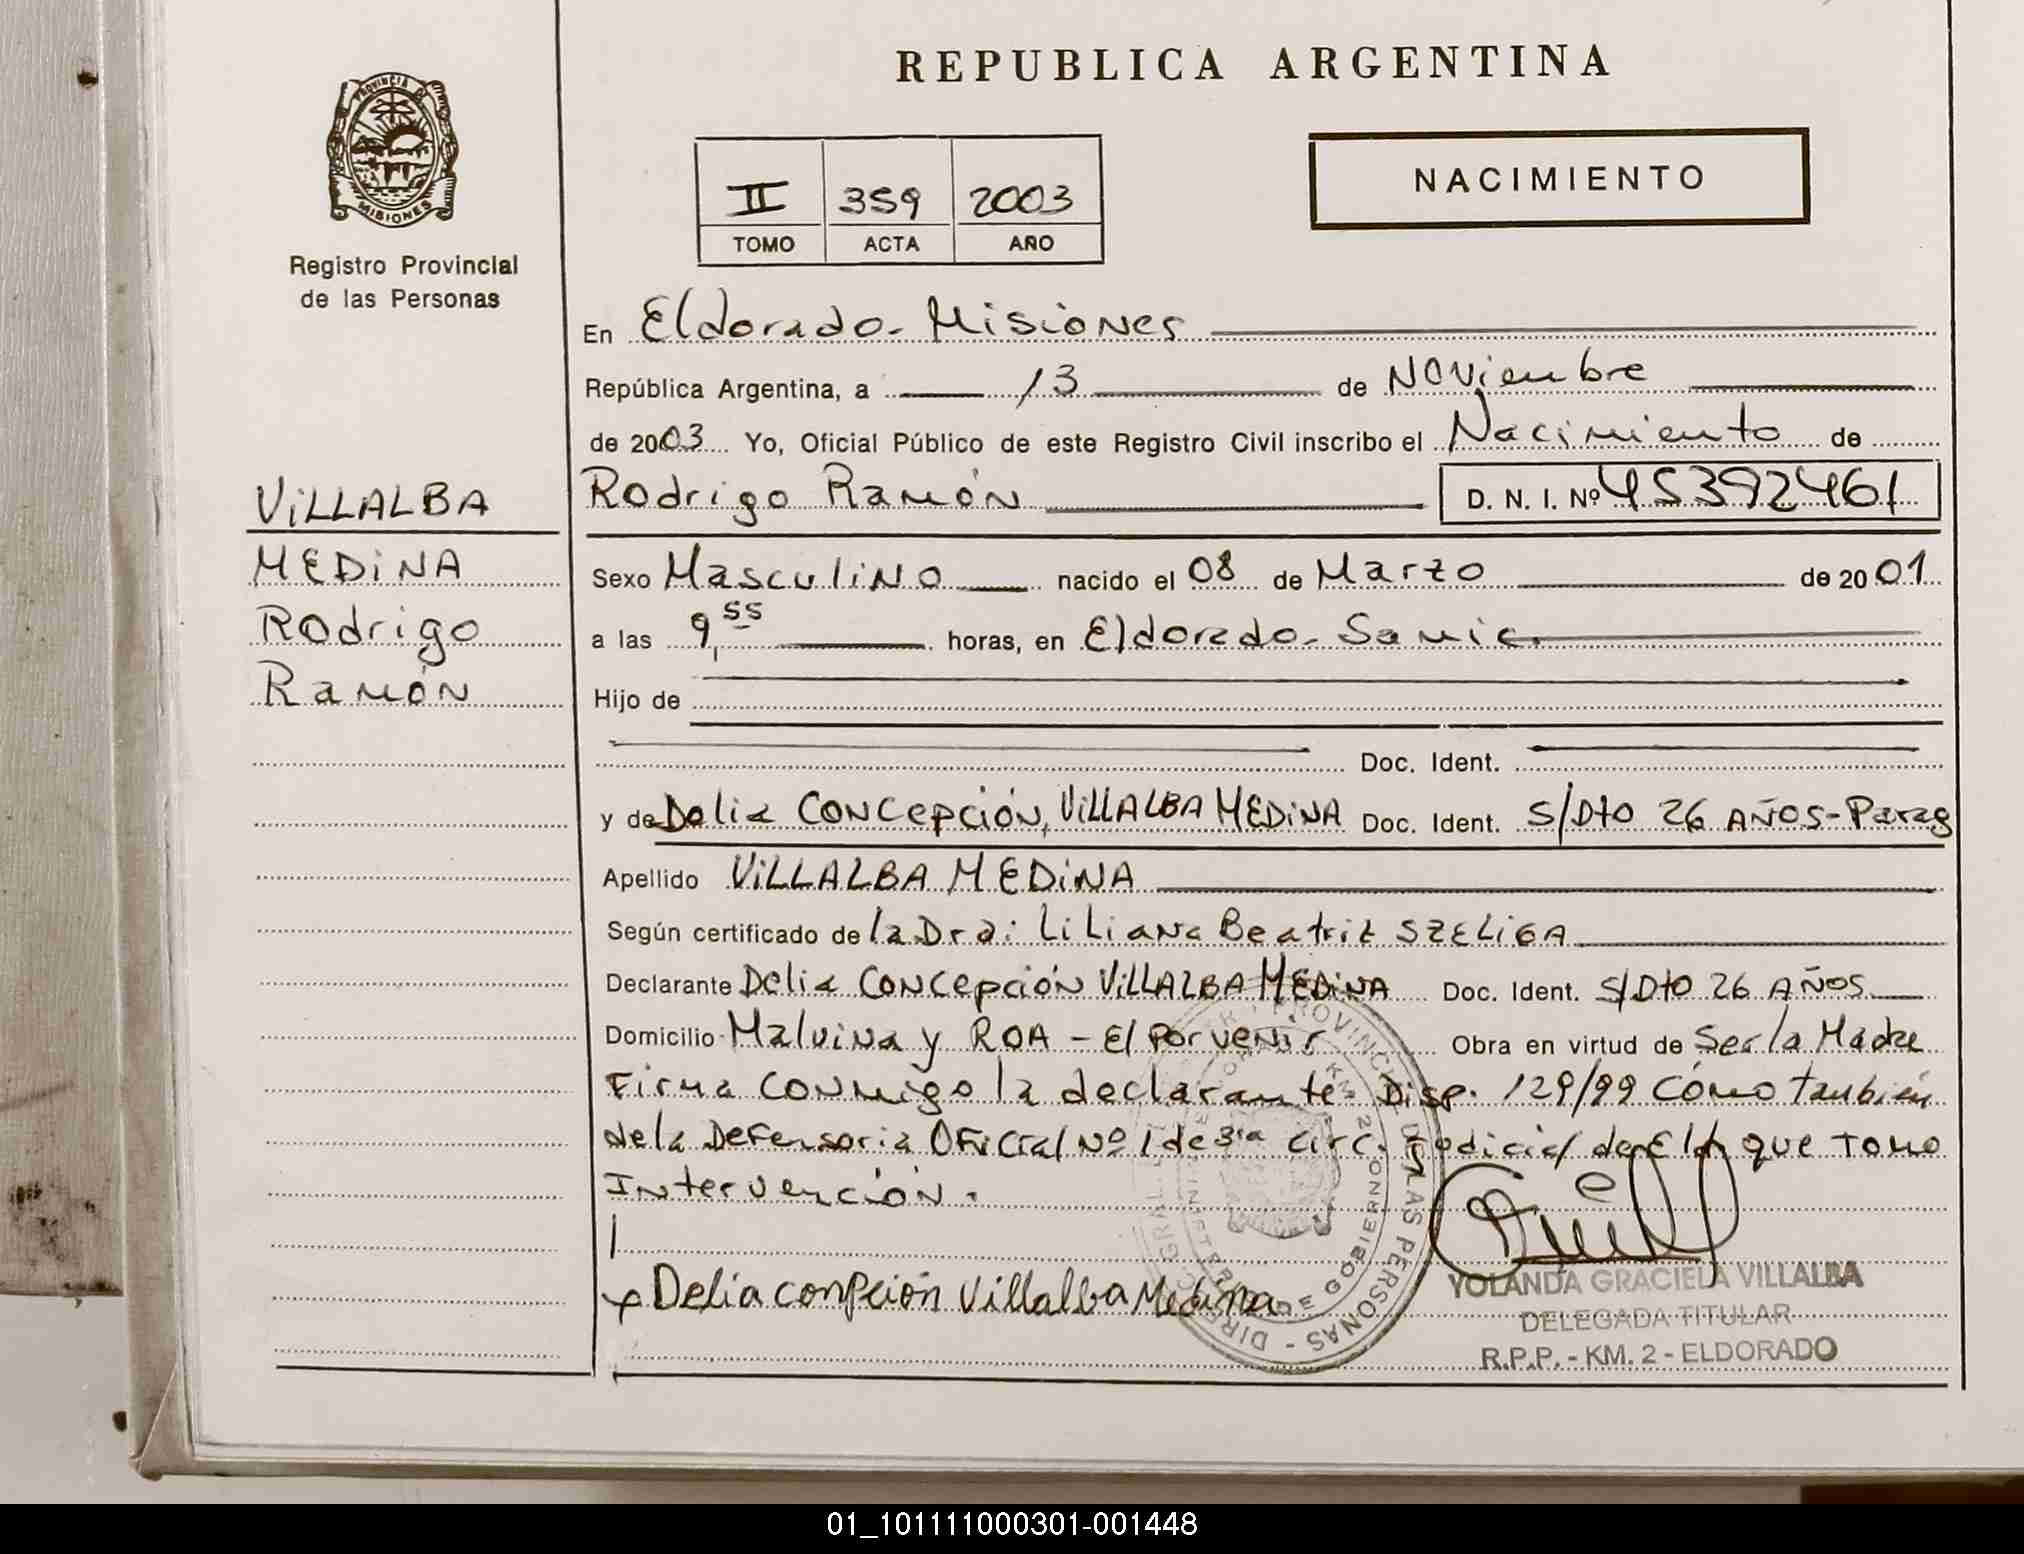 REPUBLICA ARGENTINA
PROVINCIA DE MISIONES
Registro Provincial
de las Personas
II 359 2003
TOMO ACTA AÑO
NACIMIENTO
En Eldorado - Misiones
República Argentina, a 13 de Noviembre
de 2003 Yo, Oficial Público de este Registro Civil inscribo el Nacimiento de
Rodrigo Ramón D. N. I. Nº 45392461
VILLALBA
MEDINA
Rodrigo
Ramón
Sexo Masculino nacido el 08 de Marzo de 2001
a las 9,55 horas, en Eldorado - Samic.
Hijo de
Doc. Ident.
y de Delia Concepción, VILLALBA MEDINA Doc. Ident. S/Dto 26 AÑOS - Parag
Apellido VILLALBA MEDINA
Según certificado de la Dra: Liliana Beatriz SZELIGA
Declarante Delia Concepción VILLALBA MEDINA Doc. Ident. S/Dto 26 AÑOS
Domicilio Malvina y ROA - El Porvenir Obra en virtud de Ser la Madre
Firma conmigo la declarante - Disp. 129/99 Cómo también
de la Defensoria Oficial Nº 1 de 3ra Circ. Judicial de Eld. que Tomo
Intervención.
x Delia conpción Villalba Medina
YOLANDA GRACIELA VILLALBA
DELEGADA TITULAR
R.P.P. - KM. 2 - ELDORADO
01_101111000301-001448